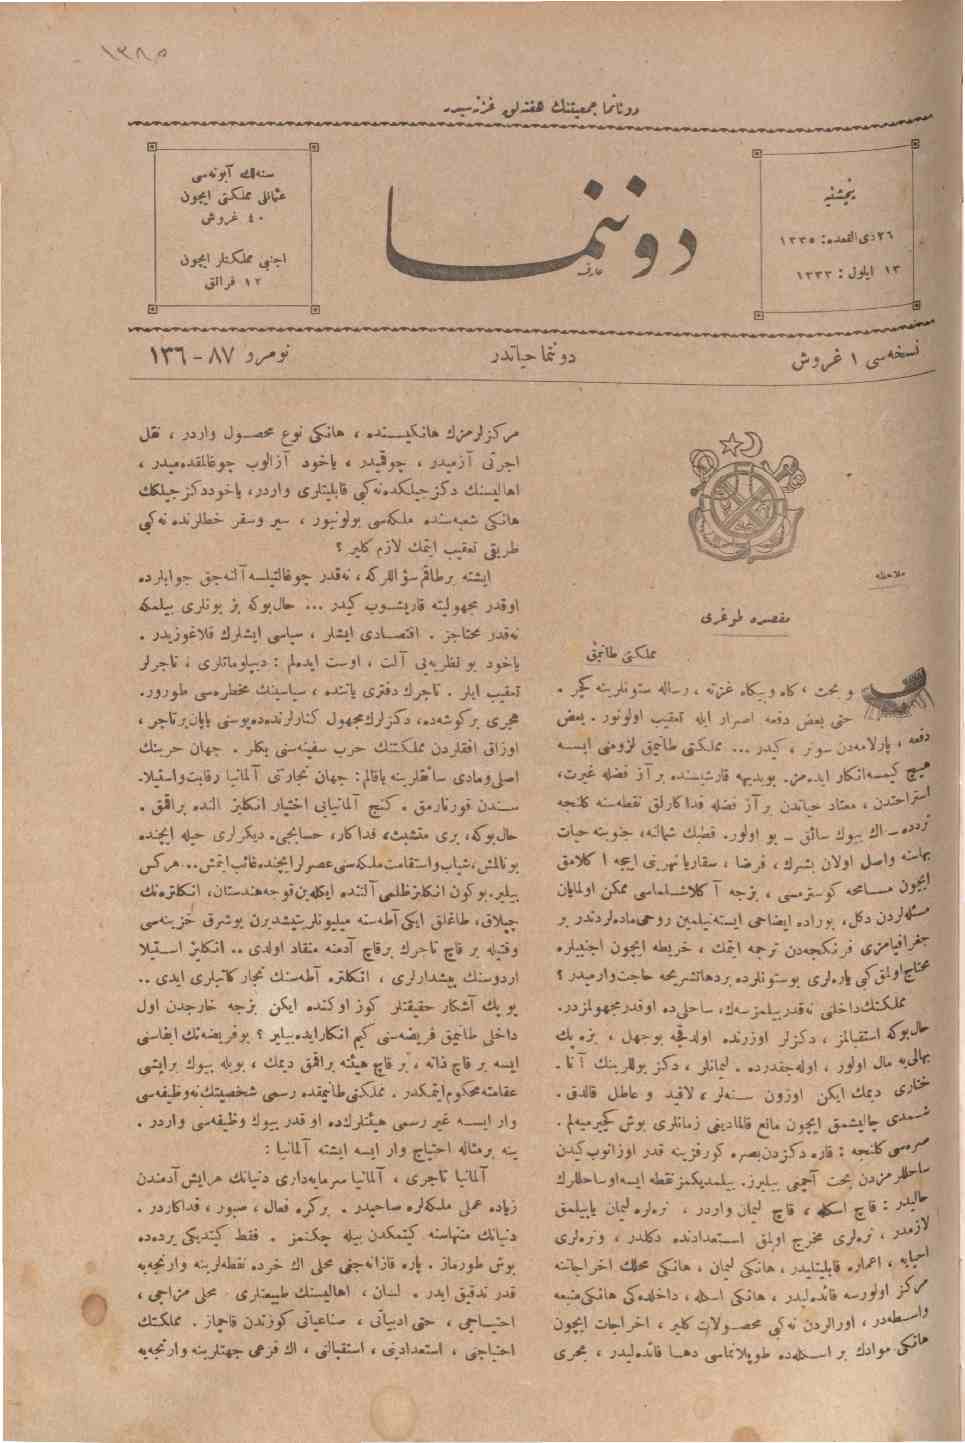 ١٣٨٥
دوناناما جمعيتنك هفته‌لق غزته‌سيدر
پنجشنبه
٢٦ ذى القعده : ١٣٣٥
١٣ ايلول : ١٣٣٣
دوننما
عارف
سنه‌لك آبونه‌سى
عثمانلى مملكتى ايچون
٤٠ غروش
اجنبى مملكتلر ايچون
١٢ فرانق
نسخه‌سى ١ غروش
دوننما حياتدر
نومرو ٨٧ - ١٣٦
ملاحظه
مقصده طوغرى
مملكتى طانيمق
و بحث ، كاه وبيكاه غزته ، رساله ستونلرينه كچر .
حتى بعض دفعه اصرار ايله تعقيب اولونور . بعض
دفعه ، پارلامه‌دن سونر ، كيدر ... مملكتى طانيمق لزومنى ايسه
هيچ كيمسه انكار ايده‌مز. بوبديهه قارشيسنده بر آز فضله غيرت،
استراحتدن ، معتاد حياتدن بر آز فضله فداكارلق نقطه‌سنه كلنجه
تردده ـ اك بيوك سائق ـ بو اولور. قطبك شمالنه، جنوبنه حيات
بهاسنه واصل اولان بشرك ، فرضا ، سقاريا نهرينى ايجه ا كلامق
ايچون مسامحه كوسترمسى ، بزجه آ كلاشلماسى ممكن اولمايان
مسئله‌لردن دكل، بوراده ايضاحى ايسته‌نيلمين روحى ماده‌لردندر بر
جغرافيامزى فرنكجه‌دن ترجمه ايتمك ، خريطه ايچون اجنبيلره
محتاج اولمق كبى ياره‌لرى بوستونلرده بردها تشريحه حاجت وارميدر ؟
مملكتك داخلنى نه‌قدر بيلمزسه‌ك، ساحلى ده اوقدر مجهولمزدر.
حال بوكه استقبالمز ، دكزلر اوزرنده اولدقجه بوجهل ، بزه پك
بهالى‌يه مال اولور ، اوله‌جقدرده . ليمانلر ، دكز يوللرينك آنا -
ختارى ديمك ايكن اوزون سنه‌لر ، لاقيد و عاطل قالدق.
شمدى چاليشمق ايچون مانع قالماديغى زمانلرى بوش كچيرميه‌لم .
صره‌سى كلنجه : قاره دكزدن بصره كورفزينه قدر اوزانوب كيدن
ساحللرمزدن بحث آچمنى بيليرز. بيلمديكمز نقطه ايسه او ساحللرك
حاليدر : قاچ اسكله ، قاچ ليمان واردر ، نره‌لره ليمان ياپيلمق
لازمدر ، نره‌لرى مخرج اولمق استعدادنده دكلدر ، ونره‌لرى
احيايه ، اعماره قابليتليدر ، هانكى ليمان ، هانكى محلك اخراجاتنه
مركز اولورسه فائده‌ليدر ، هانكى اسكله ، داخلده‌كى هانكى منبعه
واسطه‌در ، اورالردن نه كبى محصولات كلير ، اخراجات ايچون
هانكى موادك بر اسكله‌ده طوپلانماسى دها فائده‌ليدر ، بحرى
مركزلرمزك هانكيسنده ، هانكى نوع محصول واردر ، نقل
اجرتى آزميدر ، چوقميدر ، ياخود آزالوب چوغالمقده‌ميدر ،
اهاليسنك دكزجيلكده نه كبى قابليتلرى واردر، ياخوددكزجيلكك
هانكى شعبه‌سنده ملكه‌سى بولونيور ، سير وسفر خطلرنده نه كبى
طريقى تعقيب ايتمك لازم كلير ؟
ايشته برطاقم سؤاللركه ، نه‌قدر چوغالتيلسه آلنه‌جق جوابلرده
اوقدر مجهوليته قاريشوب كيدر ... حال بوكه بز بونلرى بيلمكه
نه‌قدر محتاجز . اقتصادى ايشلر ، سياسى ايشلرك قلاغوزيدر .
ياخود بو نظريه‌يى آلت ، اوست ايده‌لم : ديپلوماتلرى ، تاجرلر
تعقيب ايلر . تاجرك دفترى ياننده ، سياسينك مخطره‌سى طورور.
هجرى بركوشه‌ده، دكزلرك مجهول كنارلرنده ده يوسنى ياپان برتاجر ،
اوزاق افقلردن مملكتنك حرب سفينه‌سنى بكلر . جهان حربنك
اصلى ومادى سائقلرينه باقالم: جهان تجارتى آلمانيا رقابت واستيلا.
سندن قورتارمق . كنج آلمانيايى اختيار انكليز النده براقمق .
حال بوكه، برى متشبث، فداكار، حسابجى. ديكرلرى حيله ايچنده
بونالمش، شباب واستقامت ملكه‌سنى عصرلر ايچنده غائب ايتمش.. هركس
بيلير، بوكون انكليز ظلمى آلتنده ايكله‌ين قوجه هندستان، انكلتره‌نك
چيپلاق، طاغلق ايكى آطه‌سنه ميليونلر يتيشديرن بو شرق خزينه‌سى
وقتيله بر قاچ تاجرك برقاچ آدمنه منقاد اولدى .. انكليز استيلا
اردوسنك پيشدارلرى ، انكلتره آطه‌سنك تجار كاتبلرى ايدى ..
بو پك آشكار حقيقتلر كوز اوكنده ايكن بزجه خارجدن اول
داخلى طانيمق فريضه‌سنى كيم انكار ايده‌بيلير ؟ بوفريضه‌نك ايفاسنى
ايسه بر قاچ ذاته ، بر قاچ هيئته براقمق ديمك ، بويله بيوك برايشى
عقامته محكوم ايتمكدر . مملكتى طانيمقده رسمى شخصيتك نه وظيفه‌سى
وار ايسه غير رسمى هيئتلرك ده او قدر بيوك وظيفه‌سى واردر .
ينه بر مثاله احتياج وار ايسه ايشته آلمانيا :
آلمانيا تاجرى ، آلمانيا سرمايه‌دارى دنيانك هر ايش آدمندن
زياده عملى ملكه‌لره صاحبدر . بركره فعال ، صبور ، فداكاردر .
دنيانك منتهاسنه كيتمكدن بيله چكنمز . فقط كيتديكى يرده‌ده
بوش طورماز . پاره قازانه‌جغى محلى اك خرده نقطه‌لرينه وارنجه‌يه
قدر تدقيق ايدر . لسان ، اهاليسنك طبيعتلرى . محلى مزاجى ،
احتياجى ، حتى ادبياتى ، صناعياتى كوزندن قاچماز . مملكتك
احتياجنى ، استعدادينى ، استقبالنى ، اك فرعى جهتلرينه وارنجه‌يه